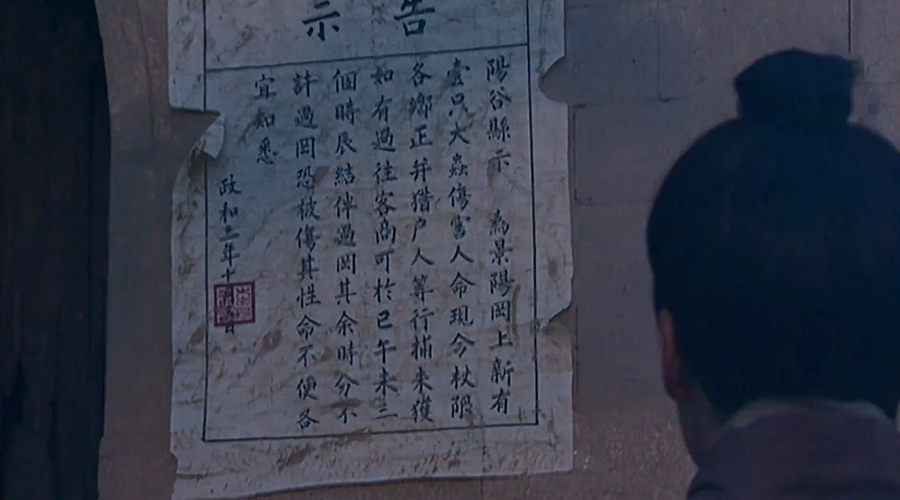 告示
陽谷縣示 為景陽岡上新有
壹只大蟲傷害人命現今杖限
各鄉正并猎户人等行捕未獲
如有過往客商可於巳午未三
個時辰結伴過岡其余時分不
許過岡恐被傷其性命不便各
宜知悉
政和三年十日